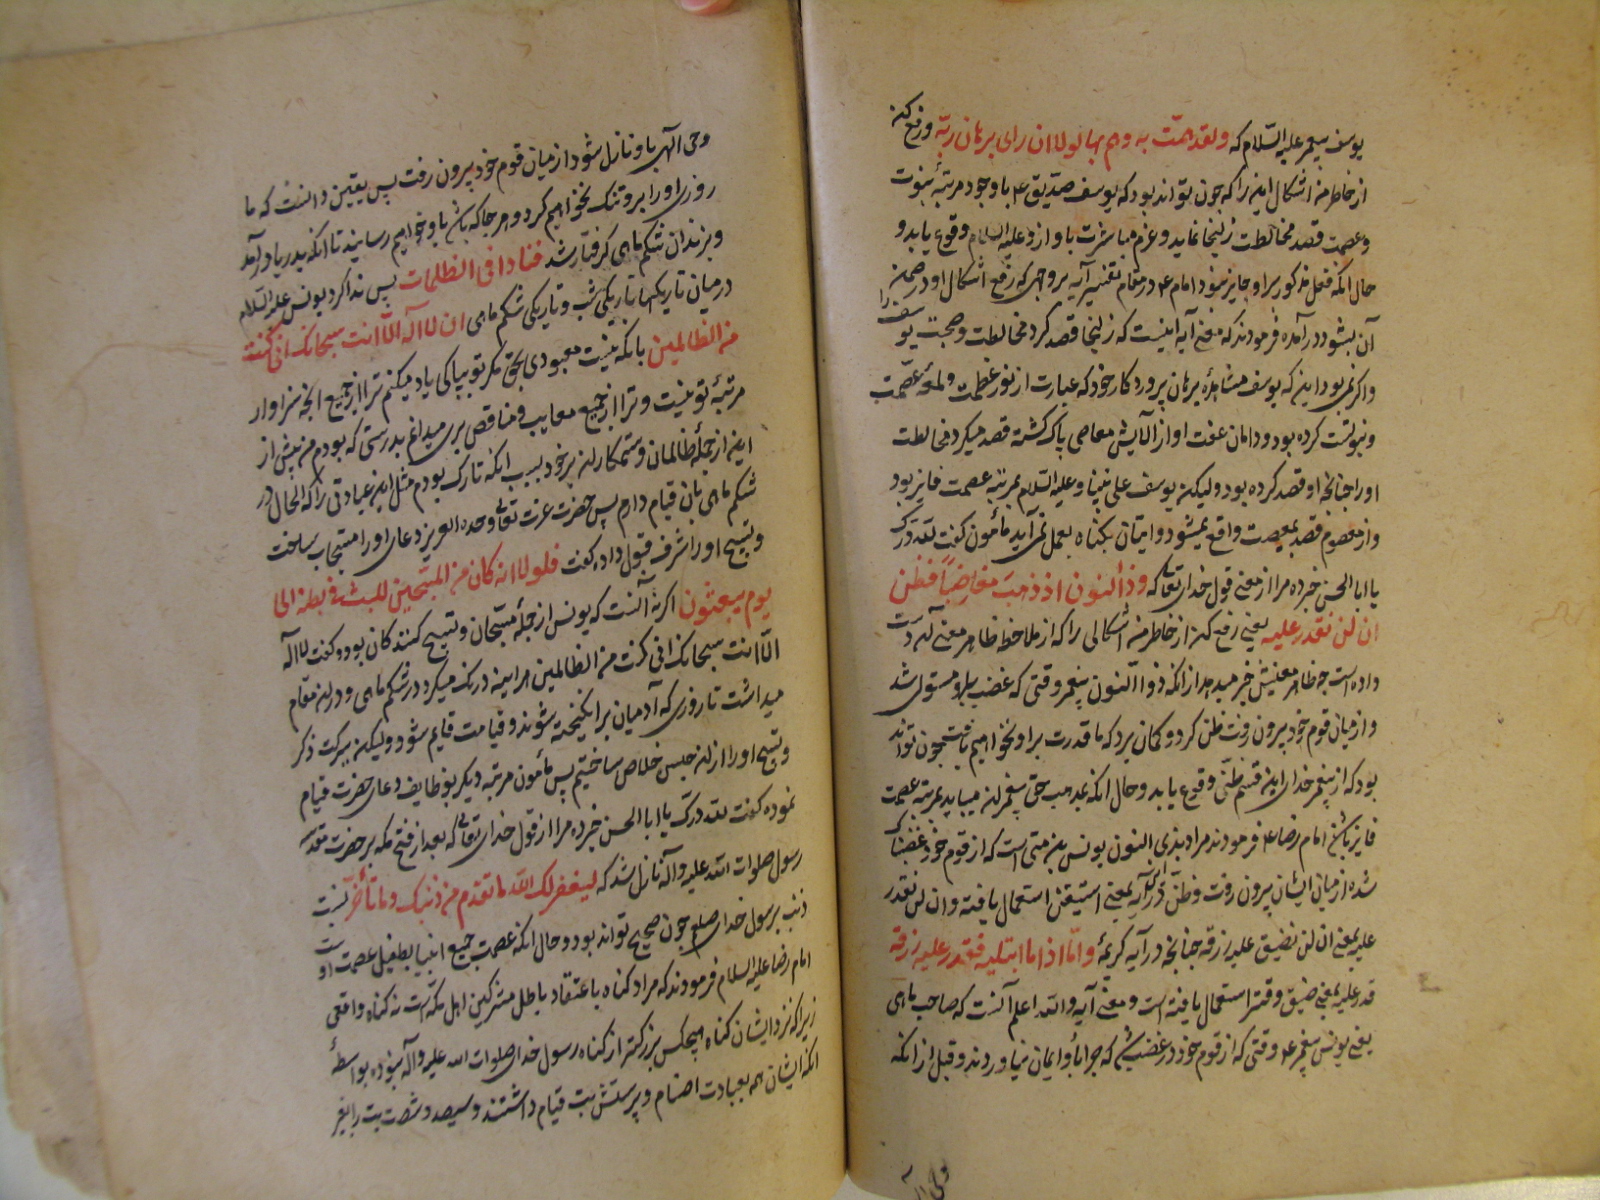 یوسف پیغمبر علیه السّلام که ولقد همّت به وهم بها لولا ان رای برهان ربّه ورفع کن
از خاطر من اشکال این را که چون تواند بود که یوسف صدّیق ع با وجود مرتبهٔ نبوت
وعصمت قصد مخالطت زلیخا نماید وعزم مباشرت باو ازو علیه السلام وقوع یابد و
حال انکه فعل مذکور براو جایز نبود امام ع در مقام تفسیر آیه بروجهی که رفع اشکال او در ضمن
آن بشود در آمده فرمودند که معنی آیه اینست که زلیخا قصد کرد مخالطت وصحبت یوسف را
واکر نمی بود این که یوسف مشاهدهٔ برهان پروردکار خود که عبارت از نور عظمت ولمعهٔ عصمت
ونبوتست کرده بود ودامان عفت او از الایش معاصی پاک کشته قصد میکرد مخالطت
اورا چنانچه او قصد کرده بود ولیکن یوسف علی نبینا وعلیه السّلام بمرتبهٔ عصمت فایز بود
واز معصوم قصد بمعصیت واقع نمیشود واتیان بکناه بعمل نمی آید مأمون کفت لله درّک
یا ابا الحسن خبرده مرا از معنی قول خدای تعالی که وذا النون اذ ذهب مغاضبًا فظن
ان لن نقدر علیه یعنی رفع کن از خاطر من اشکالی را که از ملاحظه ظاهر معنی آیه دست
داده است چه ظاهر معنیش خبر میدهد از انکه ذوالنون پیغمبر وقتی که غضب براو مستولی شد
واز میان قوم خود بیرون رفت ظن کرد وکمان برد که ما قدرت براو نخواهیم یافت چون تواند
بود که از پیغمبر خدای این قسم ظنّی وقوع یابد وحال انکه بمذهب حق پیغمبران میباید بمرتبه عصمت
فایز باشند امام رضا ع فرمودند مراد بذی النون یونس بن متی است که از قوم خود غضبناک
شده از میان ایشان بیرون رفت وظن درین آیه بمعنی استیقن استعمال یافته وان لن نقدر
علیه بمعنی ان لن نضیق علیه رزقه چنانچه در آیه کریمهٔ وامّا اذا ما ابتلیه فقدر علیه رزقه
قدر علیه بمعنی ضیق وقتر استعمال یافته است ومعنی آیه والله اعلم آنست که صاحب ماهی
یعنی یونس پیغمبر ع وقتی که از قوم خود در غضب شد که چرا باو ایمان نیاوردند وقبل از انکه
وحی ال
وحی آلهی باو نازل شود از میان قوم خود بیرون رفت پس یقین دانست که ما
روزی اورا برو تنک نخواهیم کرد وهر جا که باشد باو خواهیم رسانید تا انکه بدریا در آمد
وبزندان شکم ماهی کرفتار شد فنادا فی الظلمات پس ندا کرد یونس علیه السّلام
درمیان تاریکیها تاریکی شب وتاریکی شکم ماهی ان لا اله الّا انت سبحانک انی کنت
من الظالمین بانکه نیست معبودی بحق مکر تو بپاکی یاد میکنم ترا از جمیع انچه سزاوار
مرتبهٔ تو نیست وترا از جمیع معایب ومناقص بری میدانم بدرستی که بودم من پیش از
این از جملهٔ ظالمان وستمکاران بر خود بسبب انکه تارک بودم مثل این عبادتی را که الحال در
شکم ماهی بآن قیام دارم پس حضرت عزت تعالی وحده العزیز دعای اورا مستجاب ساخت
وتسبیح اورا شرف قبول داده کفت فلولا انه کان من المسبّحین للبث فی بطنه الی
یوم یبعثون اکر نه آنست که یونس از جملهٔ مسبّحان وتسبیح کنندکان بود وکفت لا اله
الّا انت سبحانک انی کنت من الظالمین هراینه درنک میکرد در شکم ماهی ودران مقام
میداشت تا روزی که آدمیان برانکیخته شوند وقیامت قایم شود ولیکن ببرکت ذکر
وتسبیح اورا از ان حبس خلاص ساختیم پس مأمون مرتبه دیکر بوظایف دعای حضرت قیام
نموده کفت لله درّک یا ابا الحسن خبرده مرا از قول خدای تعالی که بعد از فتح مکه بر حضرت مقدسه
رسول صلوات الله علیه وآله نازل شد که لیغفر لک الله ما تقدم من ذنبک وما تأخر نسبت
ذنب برسول خدای صلعم چون صحیح تواند بود وحال انکه عصمت جمیع انبیا بطفیل عصمت اوست
امام رضا علیه السلام فرمودند که مراد کناه باعتقاد باطل مشرکین اهل مکه است نه کناه واقعی
زیرا که نزد ایشان کناه هیچکس بزرکتر از کناه رسول خدای صلوات الله علیه وآله نبوده بواسطهٔ
انکه ایشان همه بعبادت اصنام وپرستش بت قیام داشتند وسیصد وشصت بت را بغیر